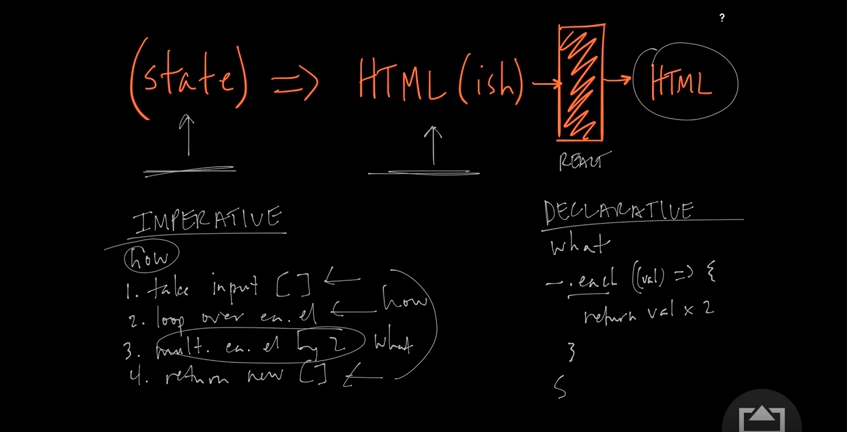 ?
(state) => HTML(ish) → → HTML
REACT
IMPERATIVE
how
1. take input [ ] ←
2. loop over ea. el ← how
3. mult. ea. el by 2 what
4. return new [ ] ←
DECLARATIVE
what
.each((val) => {
return val x 2
}